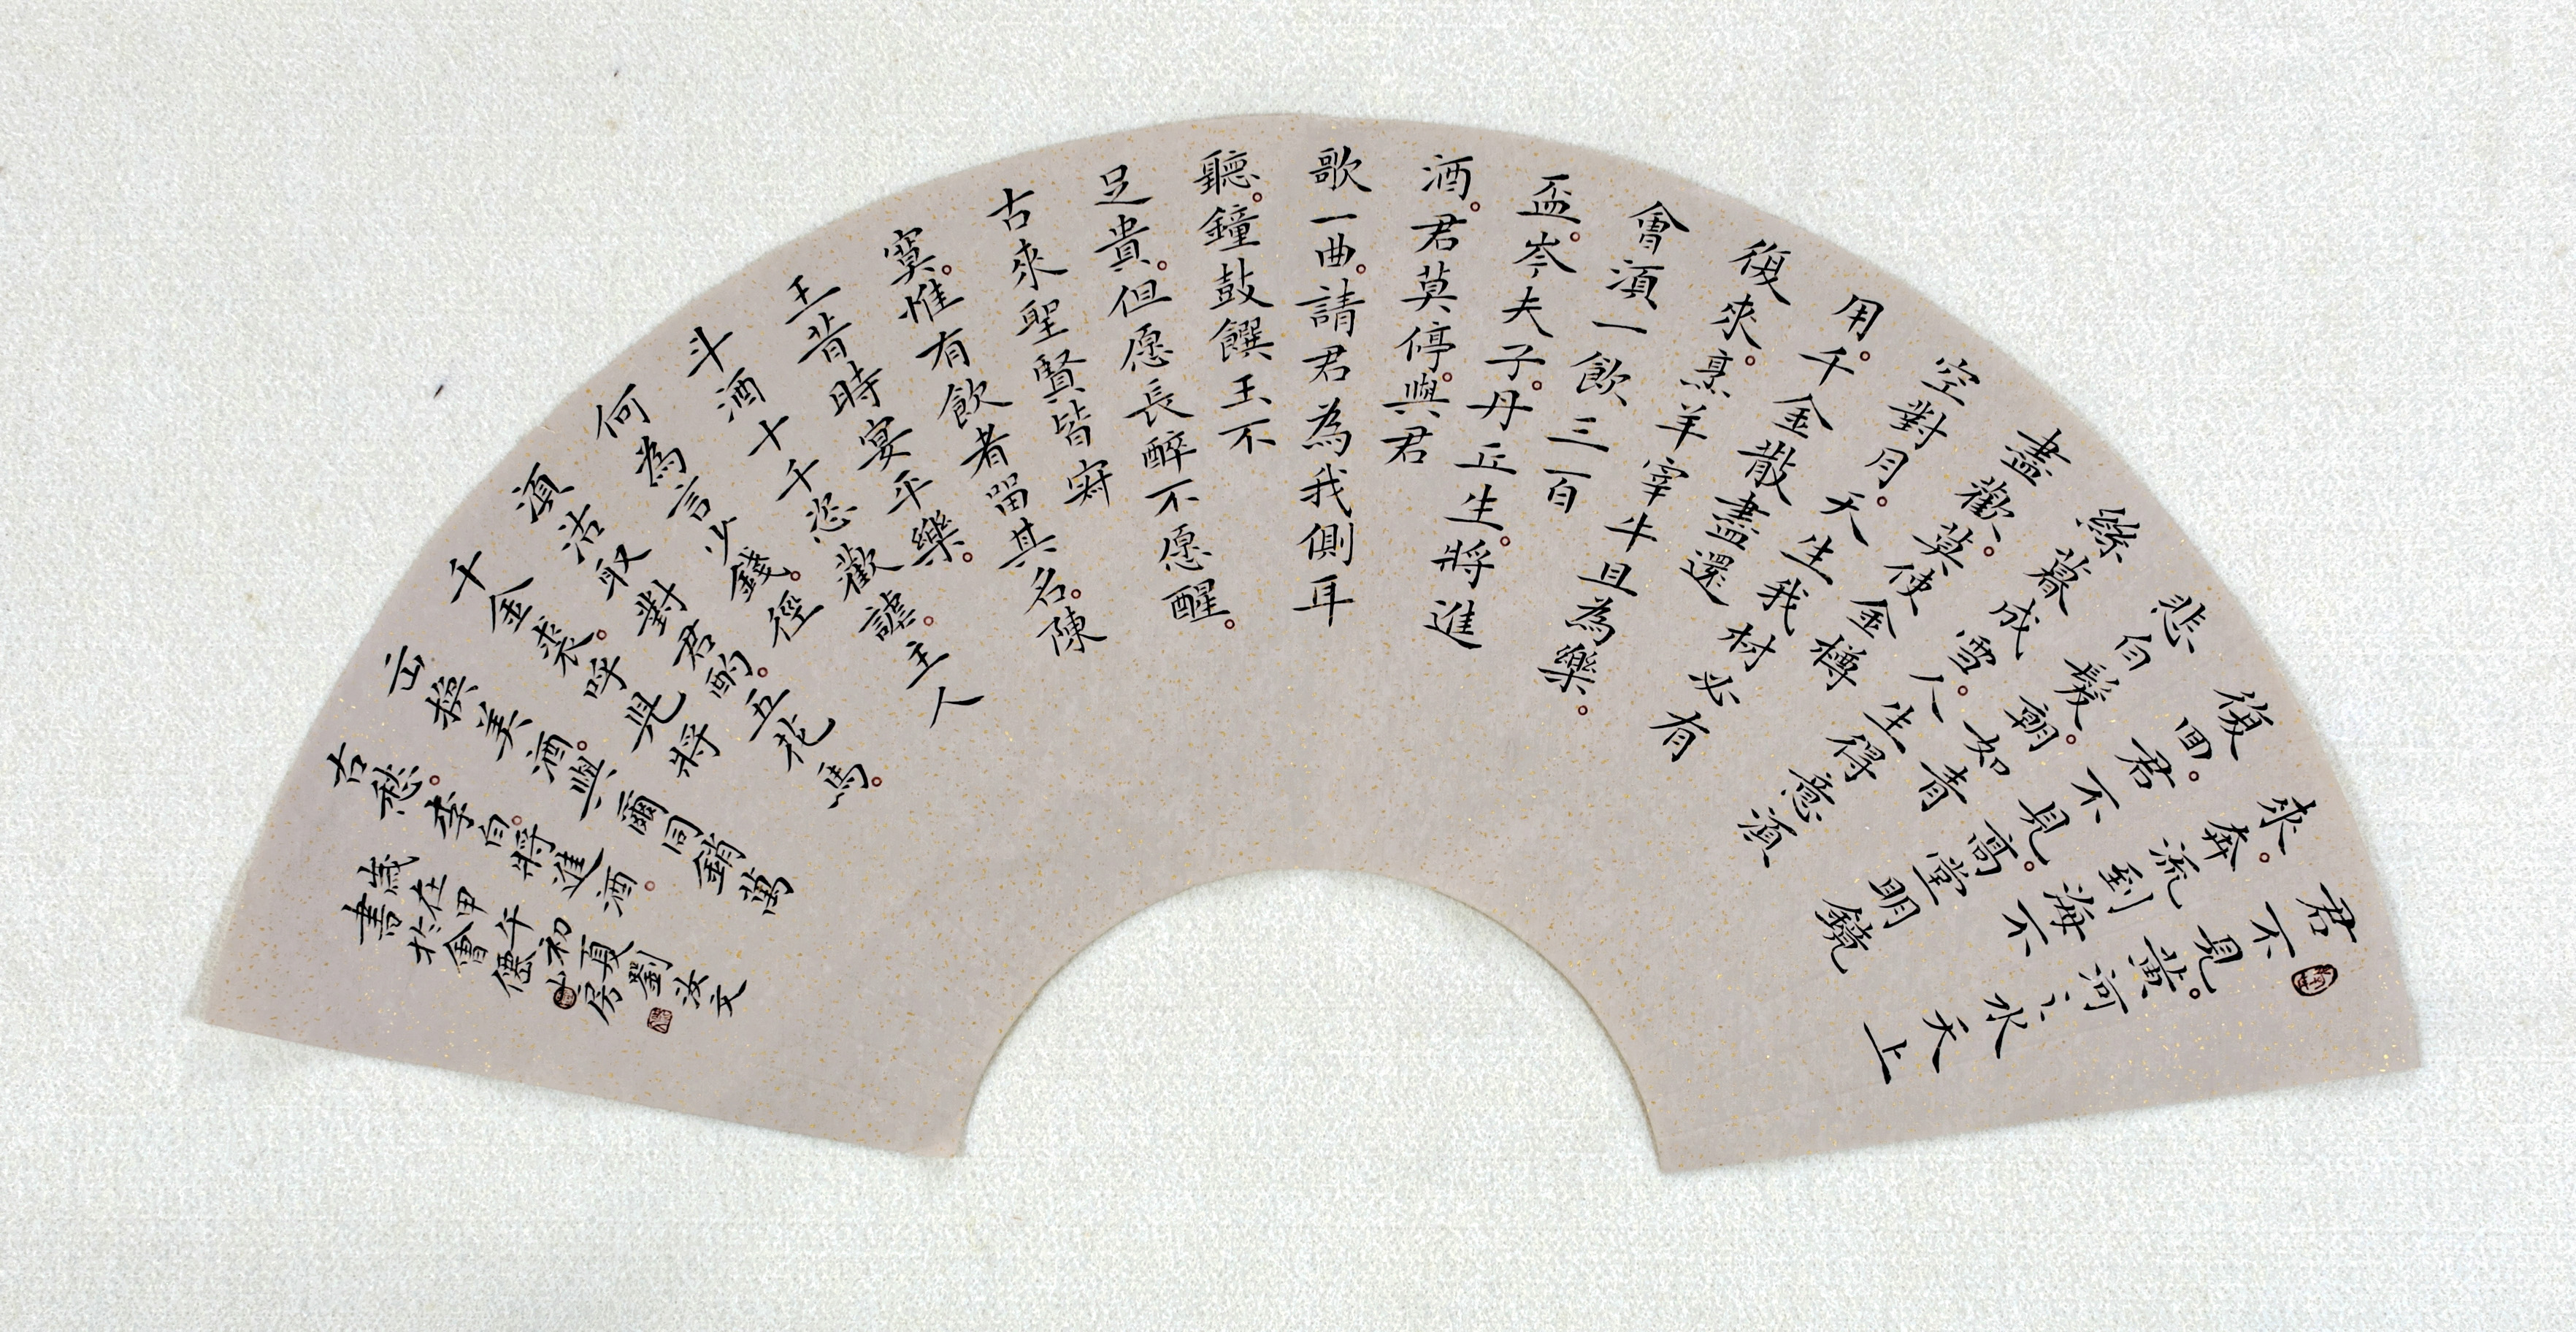 君不見黃。河之水天上
來。奔流到海不
復回。君不見。高堂明鏡
悲白髮。朝如青
絲暮成雪。人生得意須
盡歡。莫使金樽
空對月。天生我材必有
用。千金散盡還
復來。烹羊宰牛且為樂。
會須一飲三百
盃。岑夫子。丹丘生。將進
酒。君莫停。與君
歌一曲。請君為我側耳
聽。鐘鼓饌玉不
足貴。但愿長醉不愿醒。
古來聖賢皆寂
寞。惟有飲者留其名。陳
王昔時宴平樂。
斗酒十千恣歡謔。主人
何為言少錢。徑
須沽取對君酌。五花馬。
千金裘。呼兒將
出換美酒。與爾同銷萬
古愁。李白。將進酒。
歲在甲午初夏劉汝文
書於會僊山房